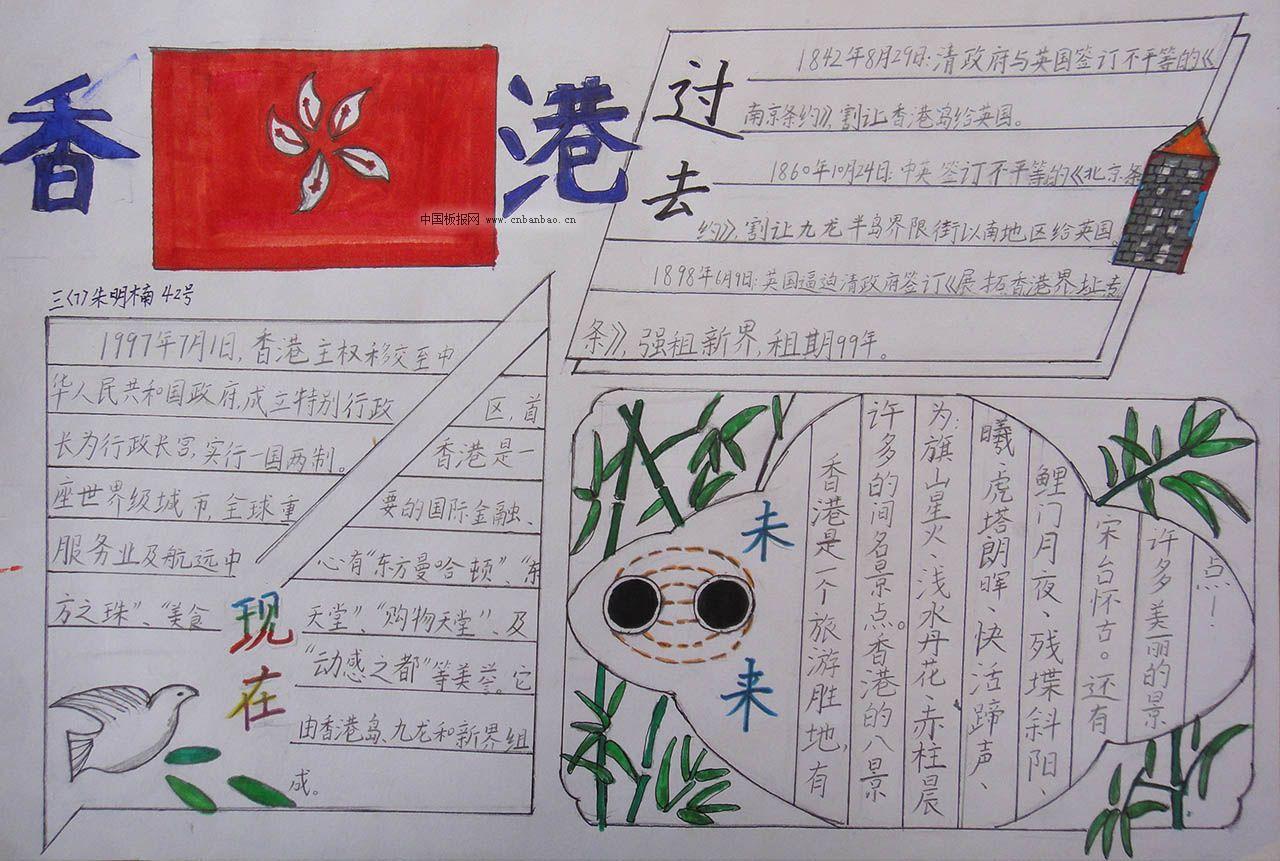 香港
中国板报网 www.cnbanbao.cn
三(7)朱明楠 42号
过去
1842年8月29日：清政府与英国签订不平等的《
南京条约》，割让香港岛给英国。
1860年10月24日：中英签订不平等的《北京条
约》，割让九龙半岛界限街以南地区给英国。
1898年6月9日：英国逼迫清政府签订《展拓香港界址专
条》，强租新界，租期99年。
现在
1997年7月1日，香港主权移交至中
华人民共和国政府，成立特别行政区，首
长为行政长官，实行一国两制。香港是一
座世界级城市，全球重要的国际金融、
服务业及航远中心有“东方曼哈顿”、“东
方之珠”、“美食天堂”、“购物天堂”、及
“动感之都”等美誉。它
由香港岛、九龙和新界组
成。
未来
香港是一个旅游胜地，有
许多的间名景点。香港的八景
为：旗山星火、浅水丹花、赤柱晨
曦、虎塔朗晖、快活蹄声、
鲤门月夜、残堞斜阳、
宋台怀古。还有
许多美丽的景
点！